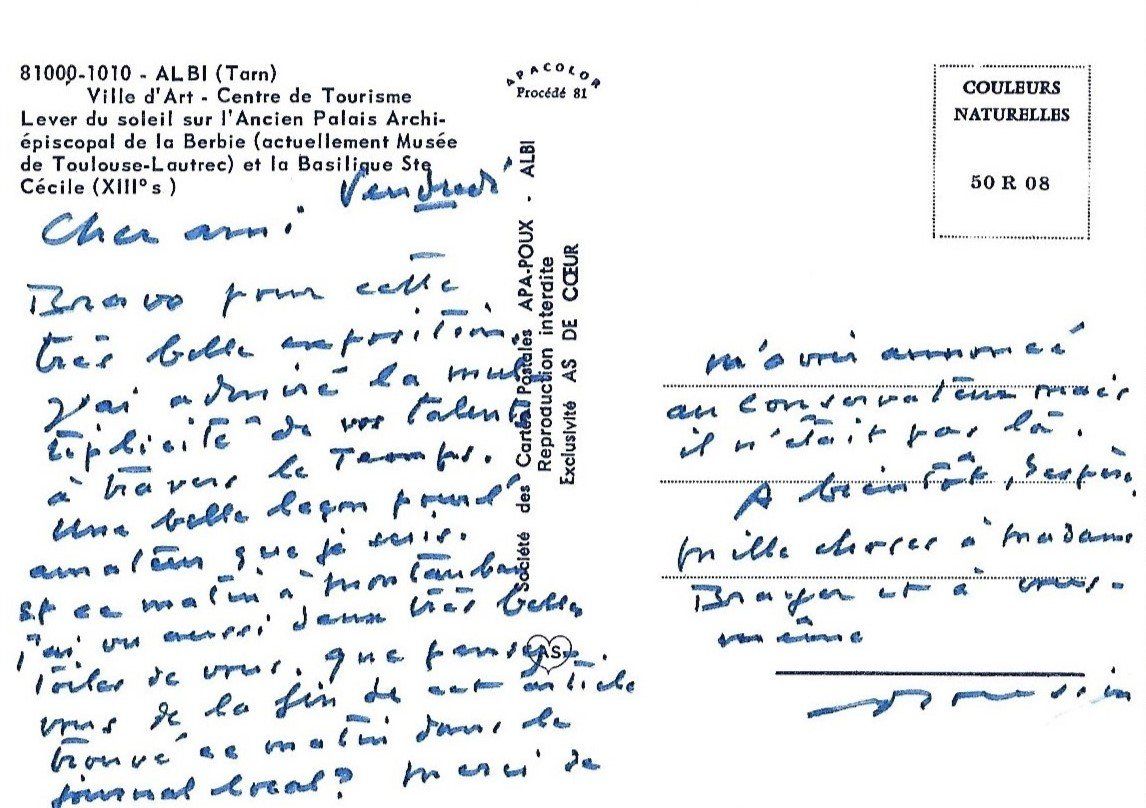 81000-1010 - ALBI (Tarn)
Ville d'Art - Centre de Tourisme
Lever du soleil sur l'Ancien Palais Archi-
épiscopal de la Berbie (actuellement Musée
de Toulouse-Lautrec) et la Basilique Ste
Cécile (XIII° s)
Vendredi
Cher ami
Bravo pour cette
très belle exposition.
J'ai admiré la mul
tiplicité de vos talents
à travers le temps.
Une belle leçon pour l'
amateur que je suis.
Et ce matin à Montauban
j'ai vu aussi deux très belles
toiles de vous. Que pensez-
vous de la fin de cet article
trouvé ce matin dans le
journal local? Merci de
APACOLOR
Procédé 81
Société des Cartes Postales APA-POUX - ALBI
Reproduction interdite
Exclusivité AS DE CŒUR
AS
COULEURS
NATURELLES
50 R 08
m'avoir annoncé
au conservateur mais
il n'était pas là.
A bientôt, j'espère,
mille choses à Madame
et à vous-
même